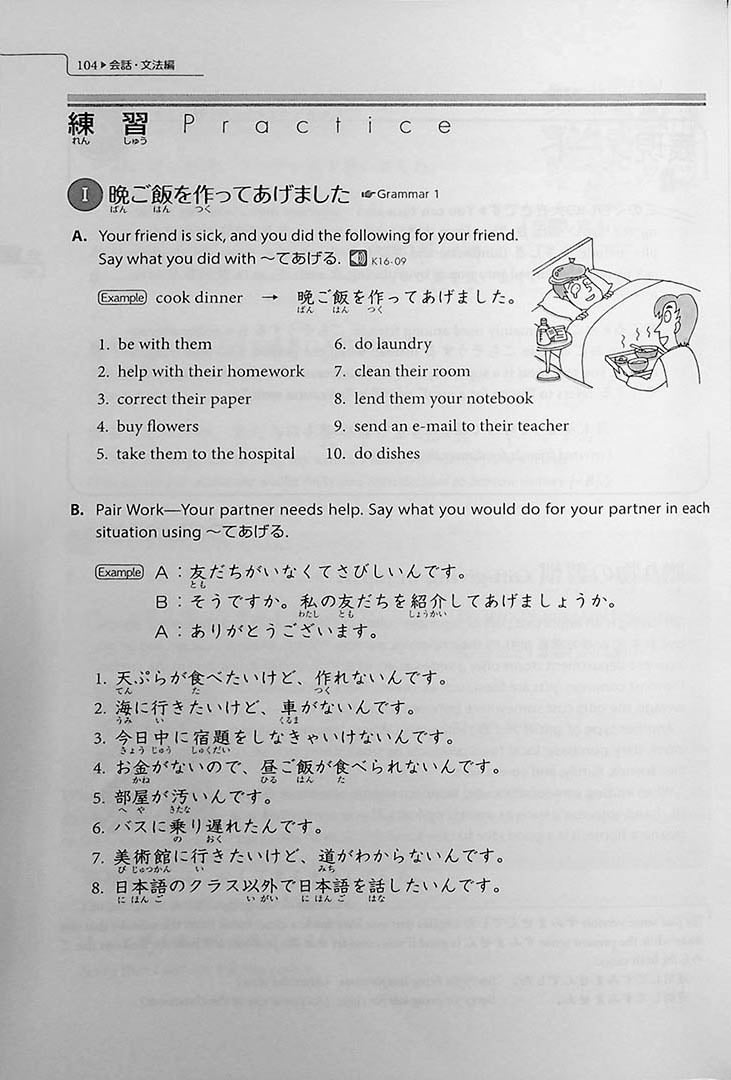 104▶会話・文法編
練習 Practice
れん しゅう
I 晩ご飯を作ってあげました ☞Grammar 1
ばん はん つく
A. Your friend is sick, and you did the following for your friend.
Say what you did with ～てあげる. K16-09
Example cook dinner → 晩ご飯を作ってあげました。
ばん はん つく
1. be with them
2. help with their homework
3. correct their paper
4. buy flowers
5. take them to the hospital
6. do laundry
7. clean their room
8. lend them your notebook
9. send an e-mail to their teacher
10. do dishes
B. Pair Work—Your partner needs help. Say what you would do for your partner in each
situation using ～てあげる.
Example A：友だちがいなくてさびしいんです。
とも
B：そうですか。私の友だちを紹介してあげましょうか。
わたし とも しょうかい
A：ありがとうございます。
1. 天ぷらが食べたいけど、作れないんです。
てん た つく
2. 海に行きたいけど、車がないんです。
うみ い くるま
3. 今日中に宿題をしなきゃいけないんです。
きょう じゅう しゅくだい
4. お金がないので、昼ご飯が食べられないんです。
かね ひる はん た
5. 部屋が汚いんです。
へ や きたな
6. バスに乗り遅れたんです。
の おく
7. 美術館に行きたいけど、道がわからないんです。
び じゅつかん い みち
8. 日本語のクラス以外で日本語を話したいんです。
に ほん ご い がい に ほん ご はな